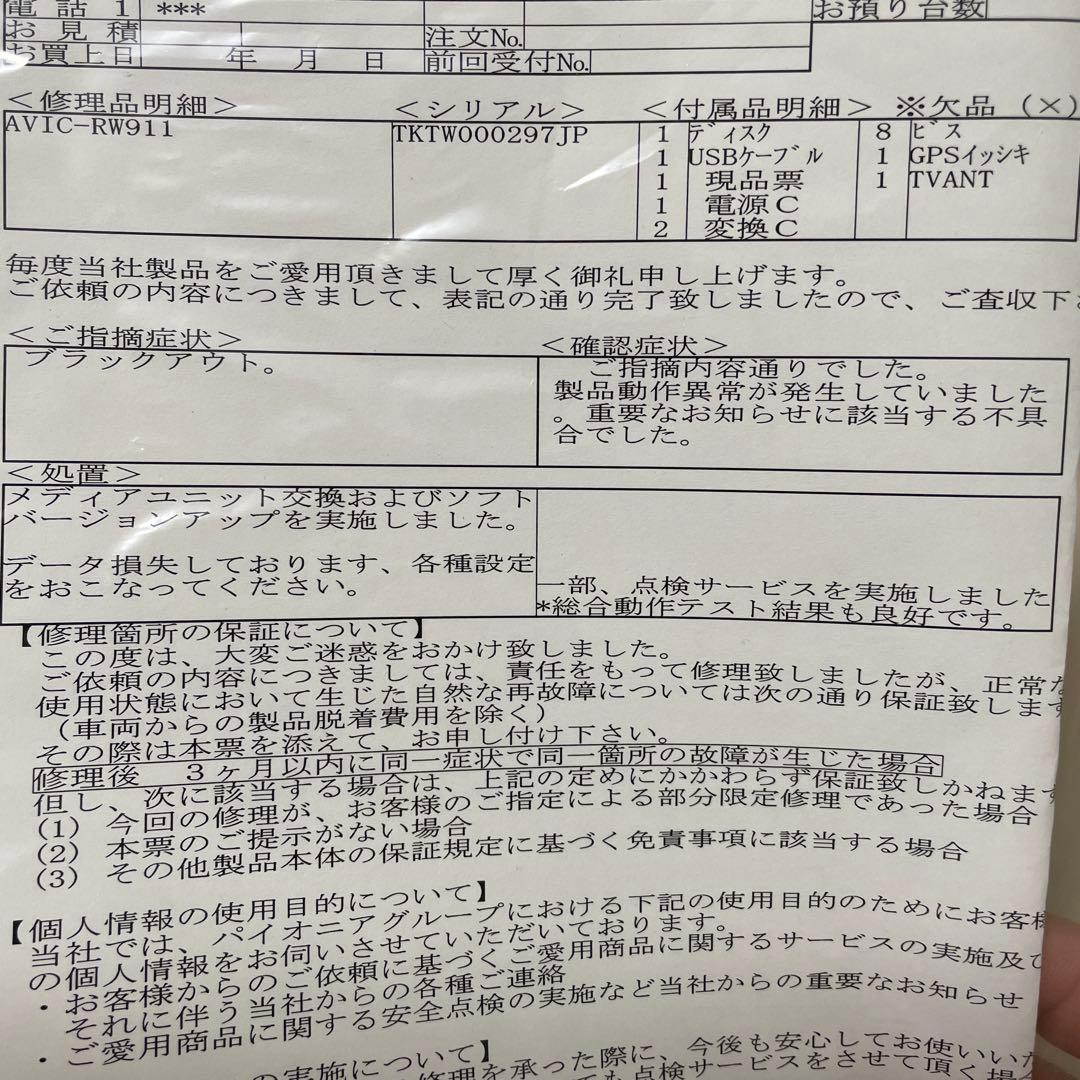 電話1 ***
お預り台数
お見積
注文No.
お買上日 年 月 日 前回受付No.
<修理品明細> <シリアル> <付属品明細> ※欠品 (×)
AVIC-RW911 TKTW000297JP 1 ディスク 8 ビス
1 USBケーブル 1 GPSイッシキ
1 現品票 1 TVANT
1 電源C
2 変換C
毎度当社製品をご愛用頂きまして厚く御礼申し上げます。
ご依頼の内容につきまして、表記の通り完了致しましたので、ご査収下
<ご指摘症状> <確認症状>
ブラックアウト。
ご指摘内容通りでした。
製品動作異常が発生していました
。重要なお知らせに該当する不具
合でした。
<処置>
メディアユニット交換およびソフト
バージョンアップを実施しました。
データ損失しております、各種設定
をおこなってください。
一部、点検サービスを実施しました
*総合動作テスト結果も良好です。
【修理箇所の保証について】
この度は、大変ご迷惑をおかけ致しました。
ご依頼の内容につきましては、責任をもって修理致しましたが、正常な
使用状態において生じた自然な再故障については次の通り保証致します
(車両からの製品脱着費用を除く)
その際は本票を添えて、お申し付け下さい。
修理後 3ヶ月以内に同一症状で同一箇所の故障が生じた場合
但し、次に該当する場合は、上記の定めにかかわらず保証致しかねます
(1) 今回の修理が、お客様のご指定による部分限定修理であった場合
(2) 本票のご提示がない場合
(3) その他製品本体の保証規定に基づく免責事項に該当する場合
【個人情報の使用目的について】
当社では、パイオニアグループにおける下記の使用目的のためにお客様
の個人情報をお伺いさせていただいております。
・お客様からのご依頼に基づくご愛用商品に関するサービスの実施及び
それに伴う当社からの各種ご連絡
・ご愛用商品に関する安全点検の実施など当社からの重要なお知らせ
の実施について】
修理を承った際に、今後も安心してお使いいた
ても点検サービスをさせて頂く場合